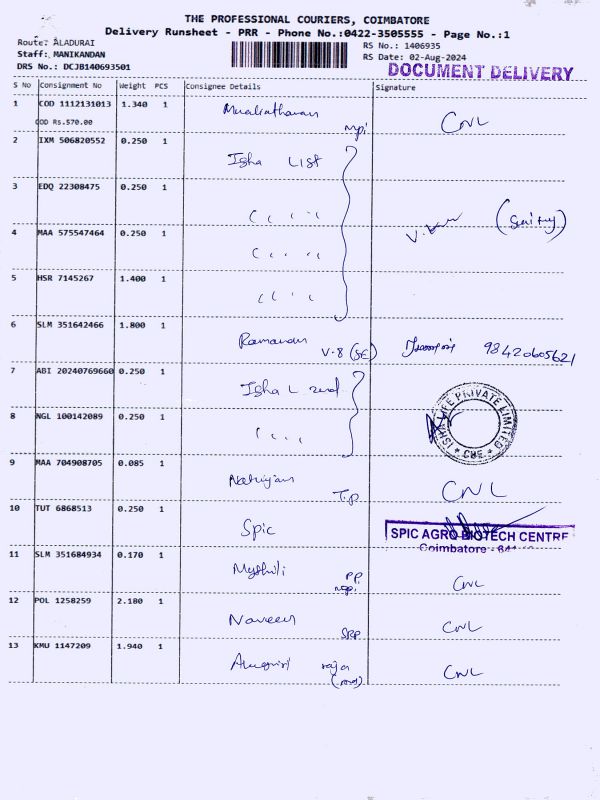 THE PROFESSIONAL COURIERS, COIMBATORE
Delivery Runsheet - PRR - Phone No.:0422-3505555 - Page No.:1
Route: ALADURAI
Staff: MANIKANDAN
DRS No.: DCJB140693501
RS No.: 1406935
RS Date: 02-Aug-2024
DOCUMENT DELIVERY
S No Consignment No Weight PCS Consignee Details Signature
1 COD 1112131013 1.340 1 CNL
COD Rs.570.00
2 IXM 506820552 0.250 1 Isha List
3 EDQ 22308475 0.250 1
4 MAA 575547464 0.250 1
5 HSR 7145267 1.400 1
6 SLM 351642466 1.800 1 V.8 (SE) 98420605621
7 ABI 20240769660 0.250 1 Isha L
ISHA LIFE PRIVATE LIMITED * CBE *
8 NGL 100142089 0.250 1
9 MAA 704908705 0.085 1 T.P. CNL
10 TUT 6868513 0.250 1 Spic
SPIC AGRO BIOTECH CENTRE
Coimbatore - 641
11 SLM 351684934 0.170 1 Mythili CNL
12 POL 1258259 2.180 1 Naveen SRP CNL
13 KMU 1147209 1.940 1 raja CNL